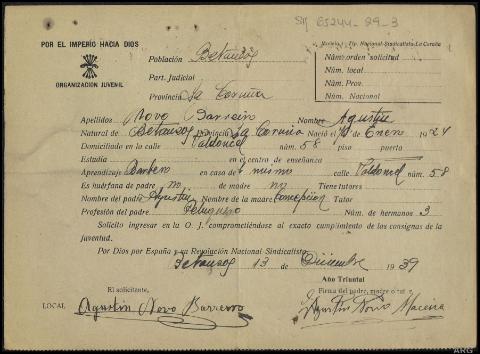 SM 65244-29-3
POR EL IMPERIO HACIA DIOS
ORGANIZACION JUVENIL
Modelo 1 Tip. Nacional-Sindicalista-La Coruña
Población Betanzos
Part. Judicial
Provincia La Coruña
Núm. orden solicitud
Núm. local
Núm. Prov.
Núm. Nacional
Apellidos Novo Barreiro Nombre Agustín
Natural de Betanzos Provincia La Coruña Nació el de Enero 1924
Domiciliado en la calle Valdoncel núm. 58 piso puerta
Estudia en el centro de enseñanza
Aprendizaje Barbero en casa de mismo calle Valdoncel núm. 58
Es huérfana de padre no de madre no Tiene tutores
Nombre del padre Agustín Nombre de la madre Concepción Tutor
Profesión del padre Peluquero Núm. de hermanos 3
Solicito ingresar en la O. J. comprometiéndose al exacto cumplimiento de las consignas de la
juventud.
Por Dios por España y su Revolución Nacional Sindicalista.
Betanzos 13 de Diciembre 1939
Año Triunfal
El solicitante, Firma del padre, madre o tutor,
LOCAL Agustín Novo Barreiro Agustín Novo Maceira
ARG